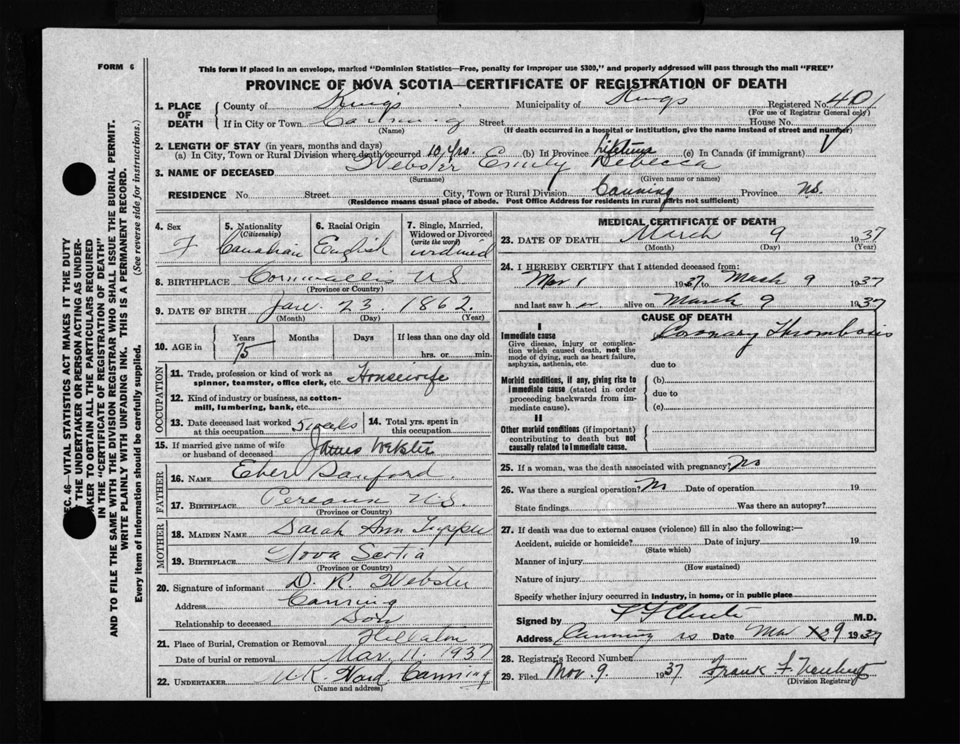 FORM 6
This form if placed in an envelope, marked "Dominion Statistics—Free, penalty for improper use $300," and properly addressed will pass through the mail "FREE"
PROVINCE OF NOVA SCOTIA—CERTIFICATE OF REGISTRATION OF DEATH
1. PLACE OF DEATH
County of Kings Municipality of Kings Registered No. 401
(For use of Registrar General only)
If in City or Town Canning Street House No.
(Name) (If death occurred in a hospital or institution, give the name instead of street and number)
2. LENGTH OF STAY (in years, months and days)
(a) In City, Town or Rural Division where death occurred 10 yrs. (b) In Province Lifetime (c) In Canada (if immigrant)
3. NAME OF DECEASED Webster Emily Rebecca
(Surname) (Given name or names)
RESIDENCE No Street City, Town or Rural Division Canning Province NS.
(Residence means usual place of abode. Post Office Address for residents in rural parts not sufficient)
4. Sex F
5. Nationality (Citizenship) Canadian
6. Racial Origin English
7. Single, Married, Widowed or Divorced (write the word) widowed
8. BIRTHPLACE Cornwallis NS
(Province or Country)
9. DATE OF BIRTH Jan 23 1862
(Month) (Day) (Year)
10. AGE in Years 75 Months Days If less than one day old
hrs. or min.
OCCUPATION
11. Trade, profession or kind of work as spinner, teamster, office clerk, etc. Housewife
12. Kind of industry or business, as cotton-mill, lumbering, bank, etc.
13. Date deceased last worked at this occupation
14. Total yrs. spent in this occupation
15. If married give name of wife or husband of deceased James Webster
FATHER
16. NAME Eber Sanford
17. BIRTHPLACE NS
(Province or Country)
MOTHER
18. MAIDEN NAME Sarah Ann
19. BIRTHPLACE Nova Scotia
(Province or Country)
20. Signature of informant D. R. Webster
Address Canning
Relationship to deceased Son
21. Place of Burial, Cremation or Removal Hillaton
Date of burial or removal Mar. 11. 1937
22. UNDERTAKER Canning
(Name and address)
MEDICAL CERTIFICATE OF DEATH
23. DATE OF DEATH March 9 1937
(Month) (Day) (Year)
24. I HEREBY CERTIFY that I attended deceased from:
Mar 1 1937 to March 9 1937
and last saw h er alive on March 9 1937
CAUSE OF DEATH
I
Immediate cause Coronary Thrombosis
Give disease, injury or complication which caused death, not the mode of dying, such as heart failure, asphyxia, asthenia, etc.
due to
Morbid conditions, if any, giving rise to immediate cause (stated in order proceeding backwards from immediate cause).
(b)
due to
(c)
II
Other morbid conditions (if important) contributing to death but not causally related to immediate cause.
25. If a woman, was the death associated with pregnancy? No
26. Was there a surgical operation? No Date of operation 19
State findings Was there an autopsy?
27. If death was due to external causes (violence) fill in also the following:—
Accident, suicide or homicide? Date of injury 19
(State which)
Manner of injury
(How sustained)
Nature of injury
Specify whether injury occurred in industry, in home, or in public place
Signed by M.D.
Address Canning NS Date Mar 9 1937
28. Registrar's Record Number
29. Filed 9. 1937 Frank F.
(Division Registrar)
SEC. 46—VITAL STATISTICS ACT MAKES IT THE DUTY
OF THE UNDERTAKER OR PERSON ACTING AS UNDER-
TAKER TO OBTAIN ALL THE PARTICULARS REQUIRED
IN THE "CERTIFICATE OF REGISTRATION OF DEATH"
AND TO FILE THE SAME WITH THE DIVISION REGISTRAR WHO SHALL ISSUE THE BURIAL PERMIT.
WRITE PLAINLY WITH UNFADING INK. THIS IS A PERMANENT RECORD.
Every item of information should be carefully supplied. (See reverse side for instructions.)